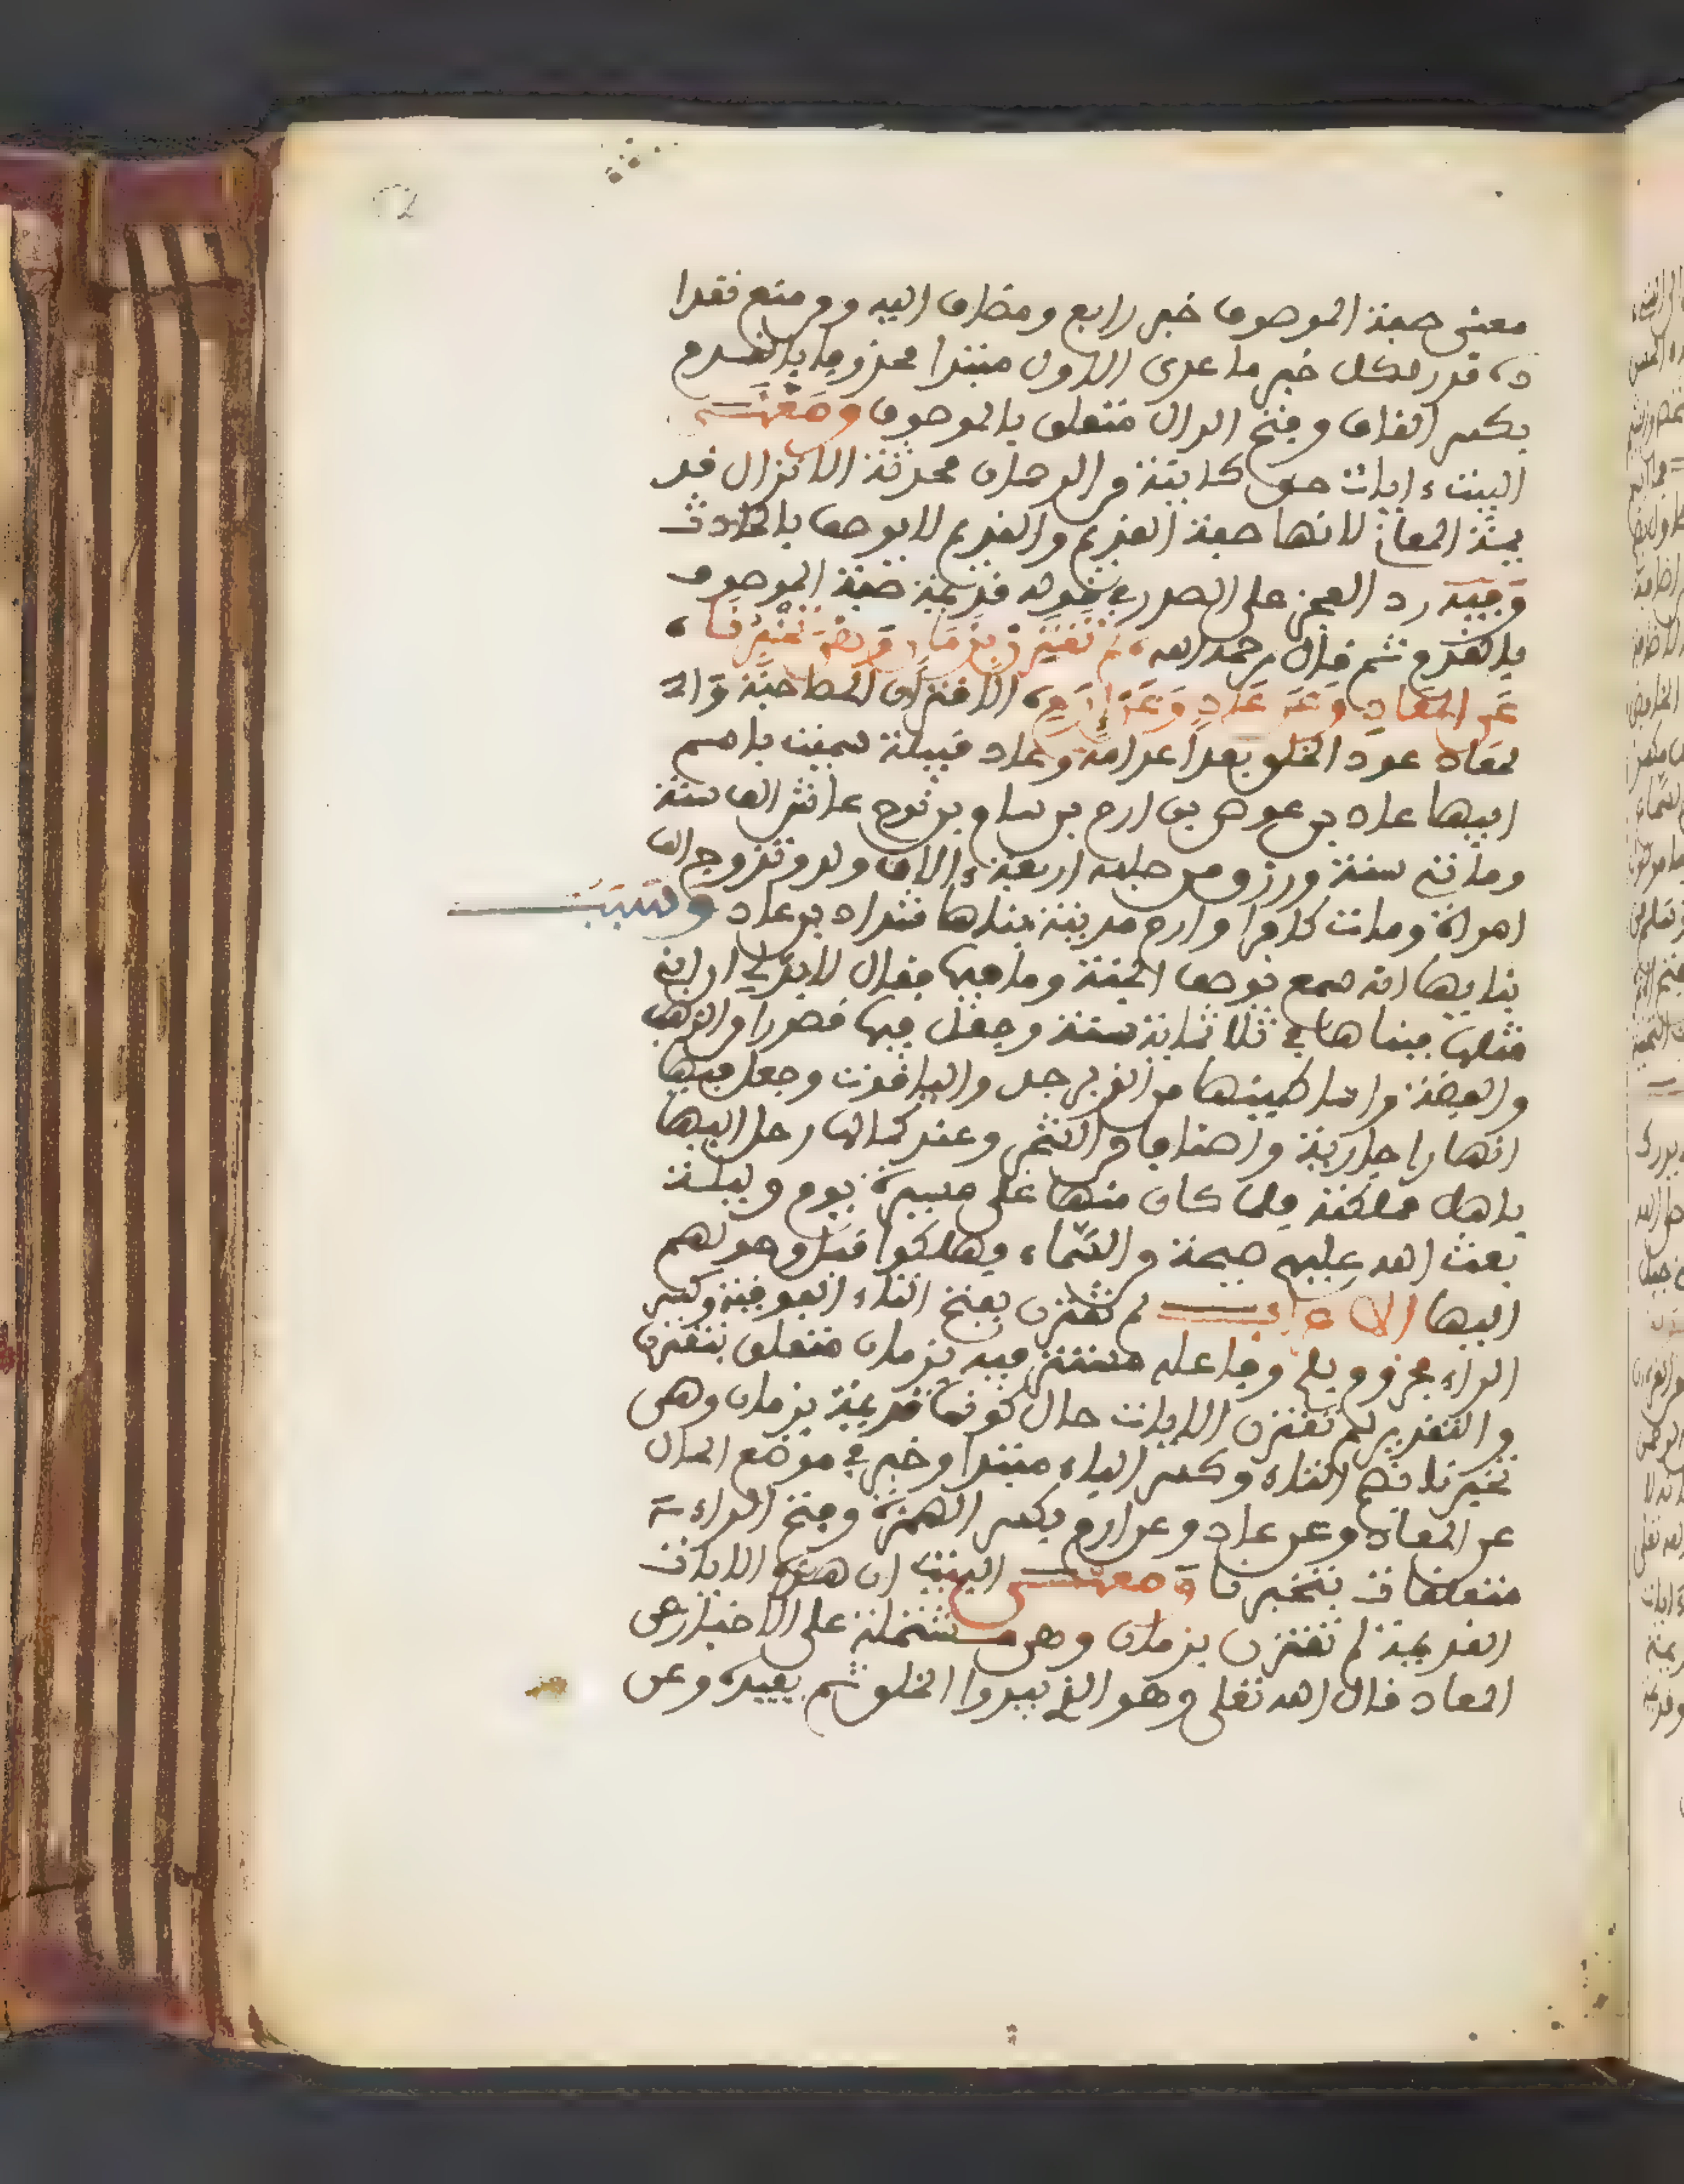 معنى صفة الموصوف خبر رابع ومضاف اليه ومن منع تعدا
د قدر لكل خبر ما عدى الاول مبتدا محذوفا بالقدم
بكسر القاف وفتح الدال متعلق بالموصوف ومعنى
البيت ءايات حق كاينة من الرحمان محدثة الانزال قد
يمة المعاني لانها صفة القديم والقديم لا يوصف بالحادث
وفيه رد العجز على الصدر في قوله قديمة صفة الموصوف
بالقدم ثم قال رحمه الله لم تقترن بزمان وهي تخبرنا
عن المعاد وعن عاد وعن ارم الاقتران المصاحبة وال
معاد عود الخلق بعد اعدامه وعاد قبيلة سميت باسم
ابيها عاد بن عوص بن ارم بن سام بن نوح عاش الف سنة
ومائتي سنة ورزق من صلبه اربعة ءالاف ولد وتزوج الف
امراة ومات كافرا وارم مدينة بناها شداد بن عاد وسبب
بنايها انه سمع بوصف الجنة وما فيها فقال لا بد لي ان ابني
مثلها فبناها في ثلاثماية سنة وجعل فيها قصورا من الذهب
والفضة واساطينها من الزبرجد والياقوت وجعل فيها
انهارا جارية واصنافا من الشجر وعند كمالها رحل اليها
باهل مملكته فلما كان منها على مسيرة يوم وليلة
بعث الله عليهم صيحة من السماء فهلكوا قبل وصولهم
اليها الاعراب لم تقترن بفتح التاء الفوقية وكسر
الراء مجزوم بلم وفاعله مستتر فيه بزمان متعلق بتقترن
والتقدير لم تقترن الايات حال كونها قديمة بزمان وهي
تخبرنا بضم التاء وكسر الباء مبتدا وخبر في موضع الحال
عن المعاد وعن عاد وعن ارم بكسر الهمزة وفتح الراء
متعلقات بتخبرنا ومعنى البيت ان هذه الايات
القديمة لم تقترن بزمان وهي مشتملة على الاخبار عن
المعاد قال الله تعلى وهو الذي يبدوا الخلق ثم يعيده وعن